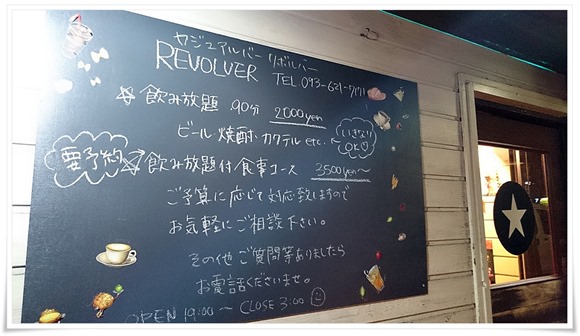 カジュアルバー リボルバー
REVOLVER TEL 093-621-7171
☆飲み放題 90分 2000yen
ビール・焼酎・カクテル etc.
いきなりOK
要予約→☆飲み放題付/食事コース 3500yen～
ご予算に応じて対応致しますので
お気軽にご相談下さい。
その他ご質問等ありましたら
お電話くださいませ。
OPEN 19:00 ～ CLOSE 3:00